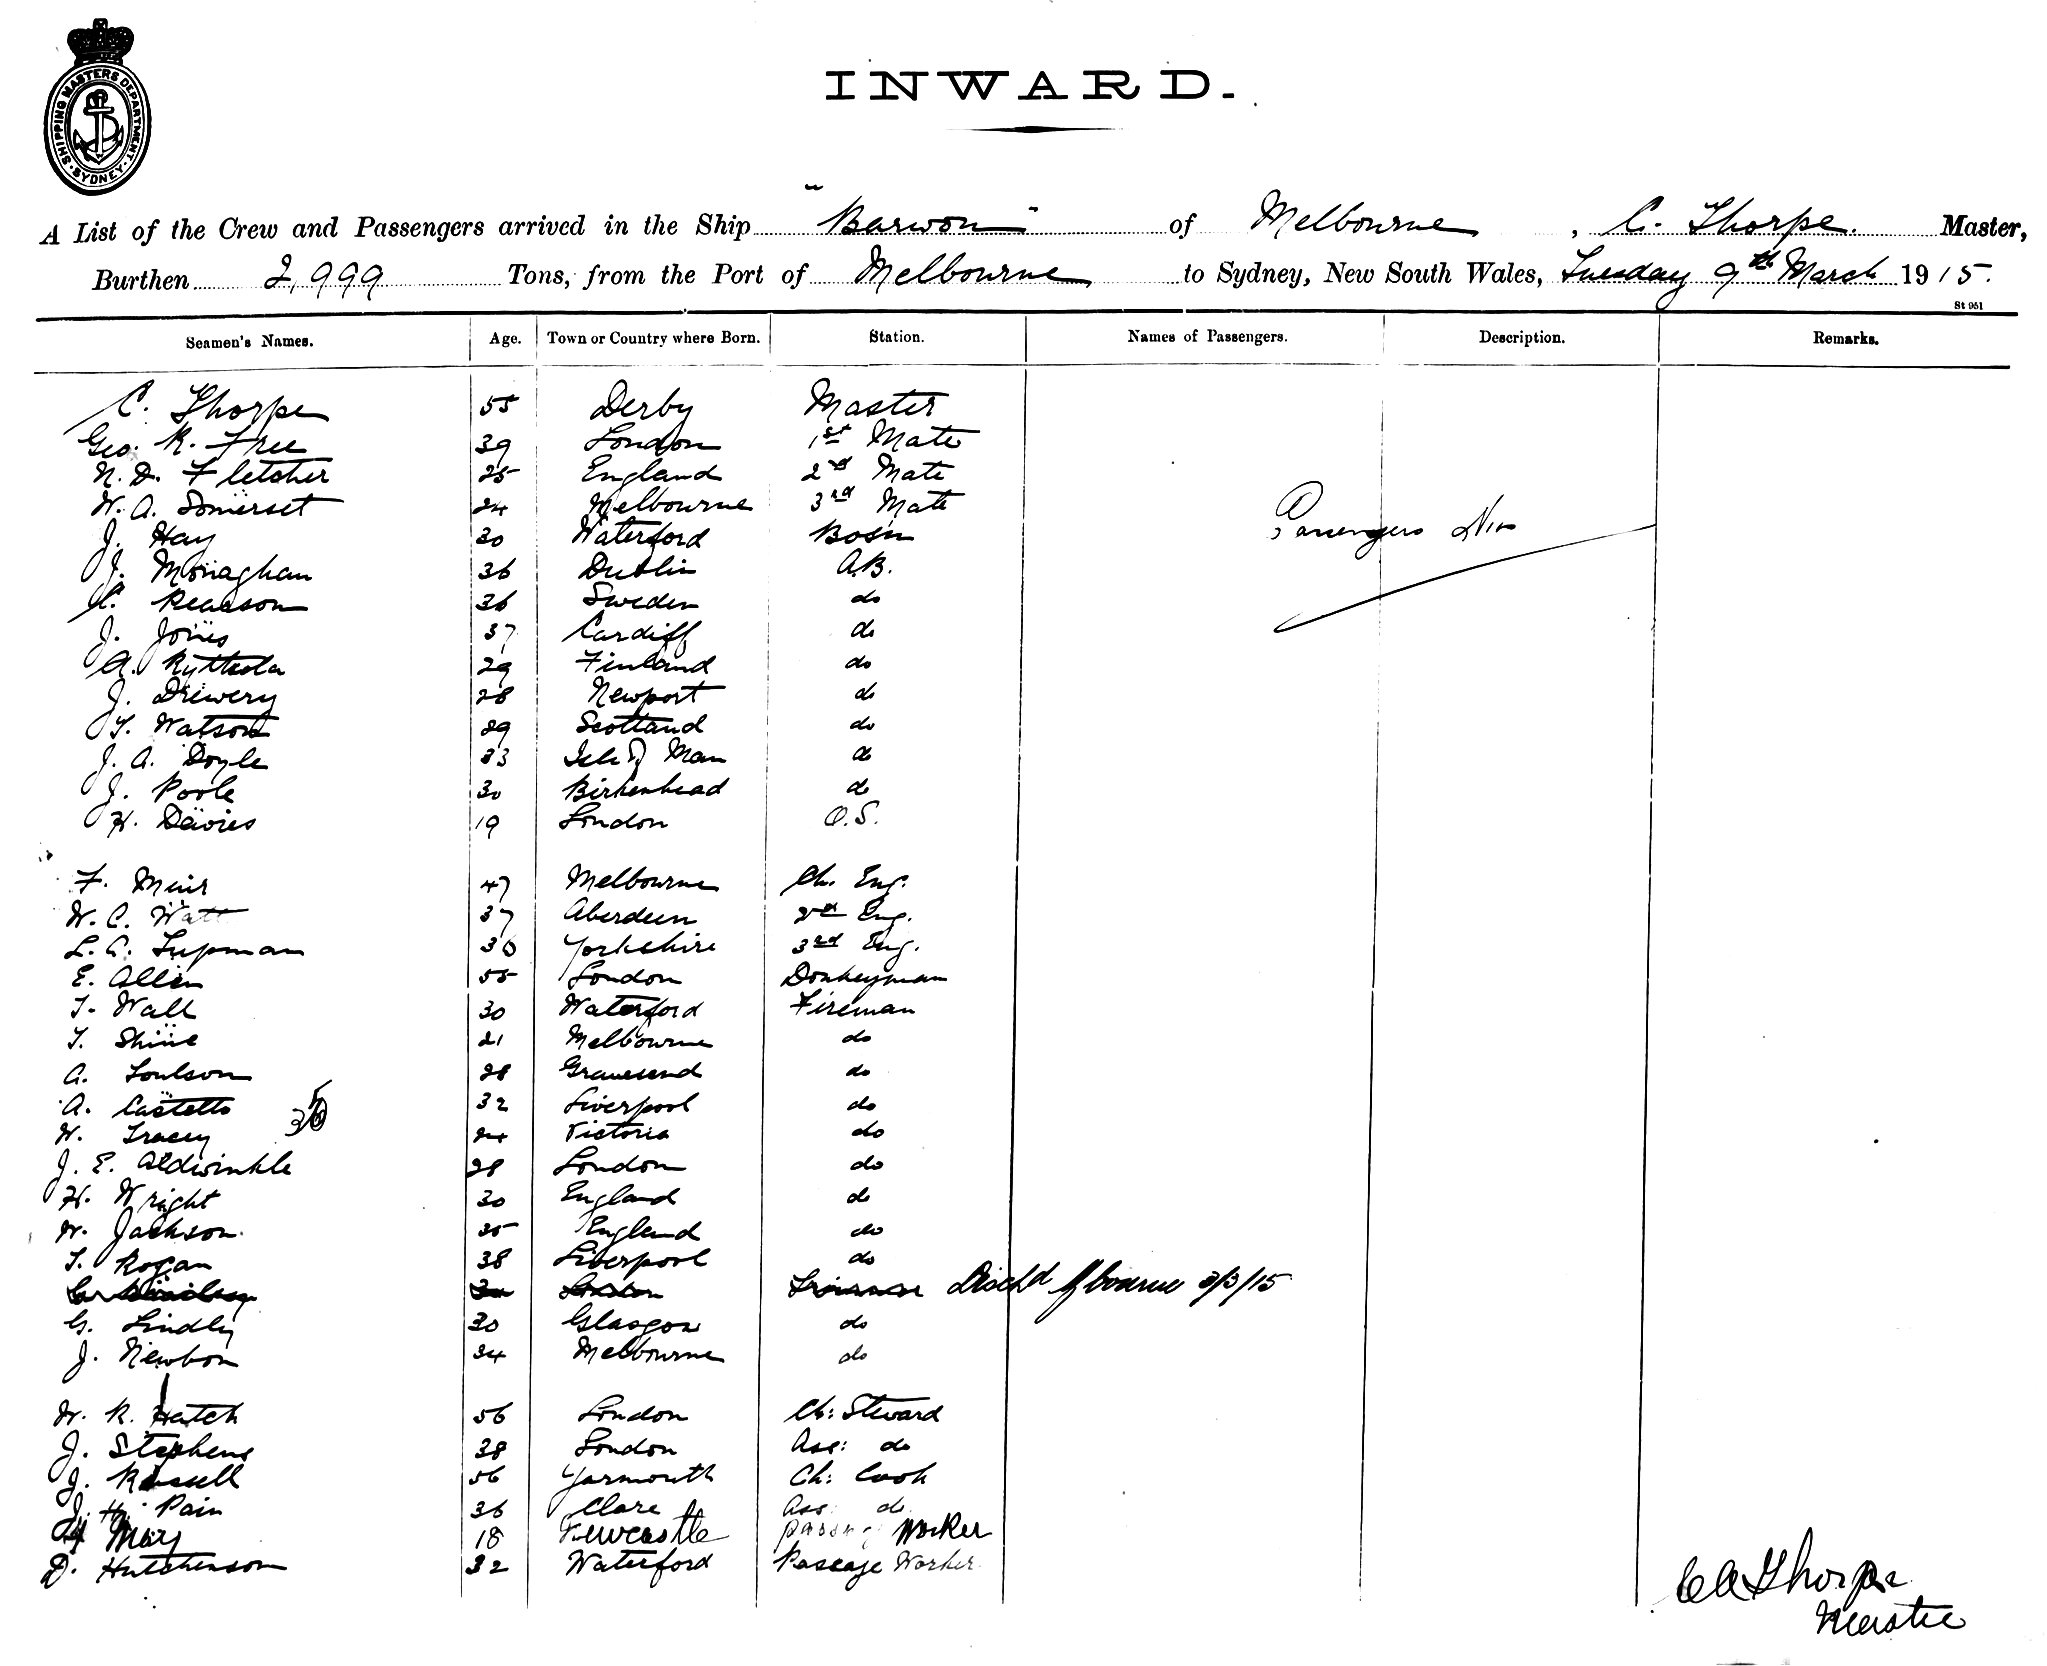 SHIPPING MASTERS DEPARTMENT. SYDNEY
INWARD.
A List of the Crew and Passengers arrived in the Ship "Barwon" of Melbourne, C. Thorpe. Master,
Burthen 2,999 Tons, from the Port of Melbourne to Sydney, New South Wales, Tuesday 9th March 1915.
St 951
Seamen's Names. Age. Town or Country where Born. Station. Names of Passengers. Description. Remarks.
C. Thorpe 55 Derby Master
Geo. R. Free 39 London 1st Mate
N. D. Fletcher 25 England 2nd Mate
W. A. Somerset 24 Melbourne 3rd Mate
J. Hay 30 Waterford Bosun
Passengers Nil
J. Monaghan 36 Dublin A.B.
C. Pearson 36 Sweden do
J. Jones 37 Cardiff do
A. 29 Finland do
J. Drewery 28 Newport do
T. Watson 29 Scotland do
J. A. Doyle 33 Isle of Man do
J. Poole 30 Birkenhead do
H. Davies 19 London O.S.
F. Muir 47 Melbourne Ch. Eng.
W. C. Watt 37 Aberdeen 2nd Eng.
L. C. Lupman 30 Yorkshire 3rd Eng.
E. Allen 55 London Donkeyman
T. Wall 30 Waterford Fireman
T. Shine 21 Melbourne do
A. Toulson 28 Gravesend do
A. Castello 32 Liverpool do
W. Tracey 24 Victoria do
J. E. Aldwinkle 28 London do
H. Wright 30 England do
W. Jackson 35 England do
T. Rogan 38 Liverpool do
London Disch'd Melbourne 3/3/15
G. Lindly 30 Glasgow do
J. Newbon 34 Melbourne do
W. R. Hatch 56 London Ch: Steward
J. Stephens 38 London Ass: do
J. Russell 56 Yarmouth Ch: Cook
J. H. Pain 36 Clare Ass: do
May 18 Newcastle Passage Worker
D. Hutchenson 32 Waterford Passage Worker
C A Thorpe
Master